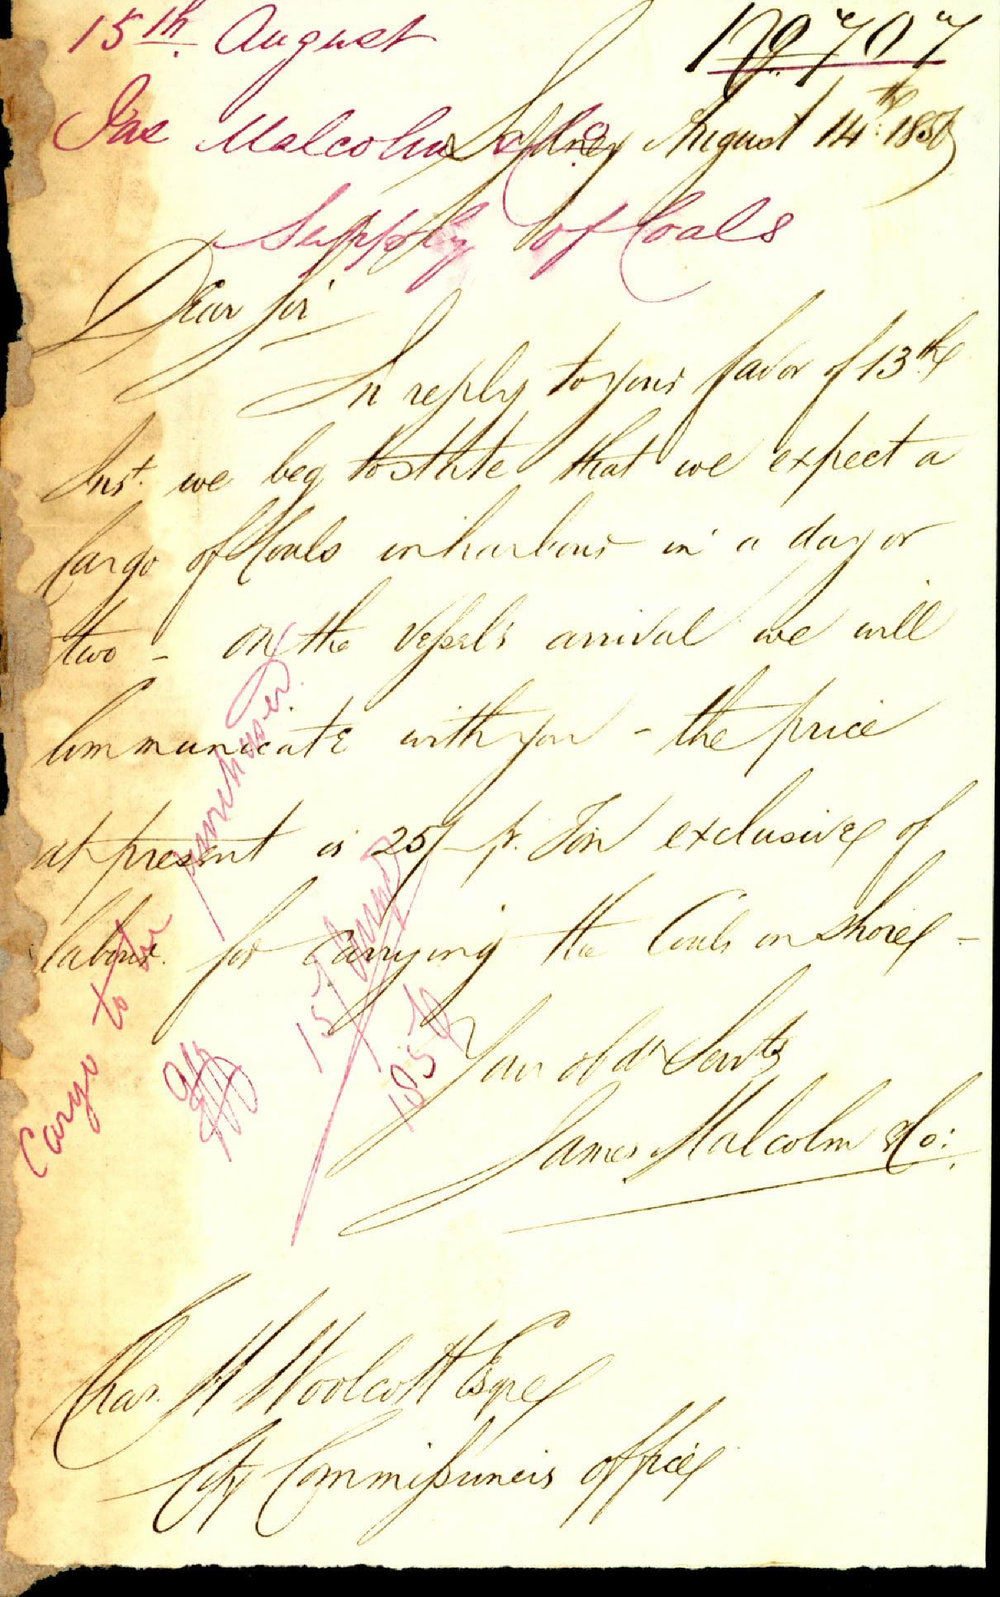 15th August
Jas Malcolm & Co
Sydney August 14th 185
Supply of Coals
Dear Sir
In reply to your favor of 13th
Inst. we beg to state that we expect a
Cargo of Coals in harbour in a day or
two - on the Vessel's arrival we will
Communicate with you - the price
at present is 25/- pr. Ton exclusive of
labour for carrying the Coals on shore -
Your obdt Servts
James Malcolm & Co:
Chas. H Woolcott Esqre
City Commissioners office
Cargo to be purchased
15 August
185